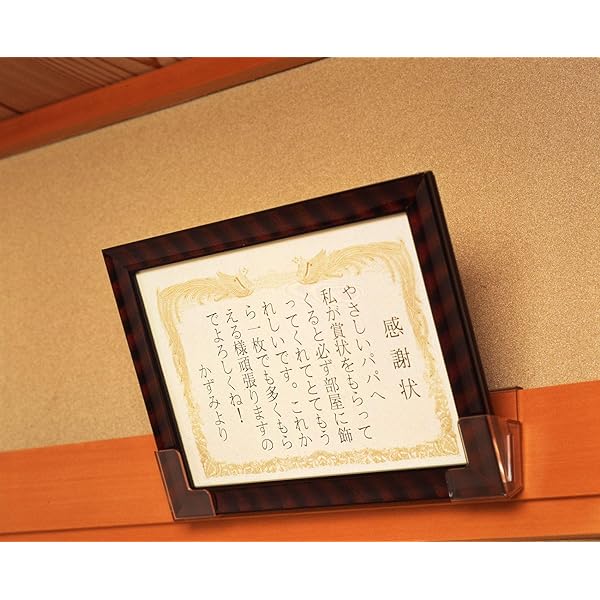 感謝状
やさしいパパへ
私が賞状をもらって
くると必ず部屋に飾
ってくれてとてもう
れしいです。これか
ら一枚でも多くもら
える様頑張りますの
でよろしくね！
かずみより